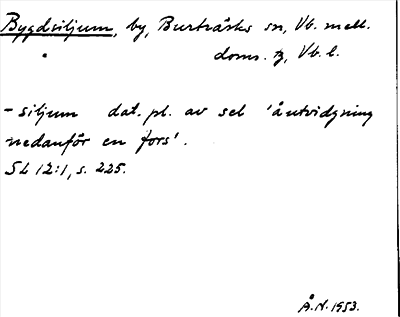 Bygdsiljum, by, Burträsks sn, Vb. mell.
doms. tg, Vb. l.
- siljum dat. pl. av sel 'åutvidgning
nedanför en fors'.
SL 12:1, s. 225.
Å.N. 1953.